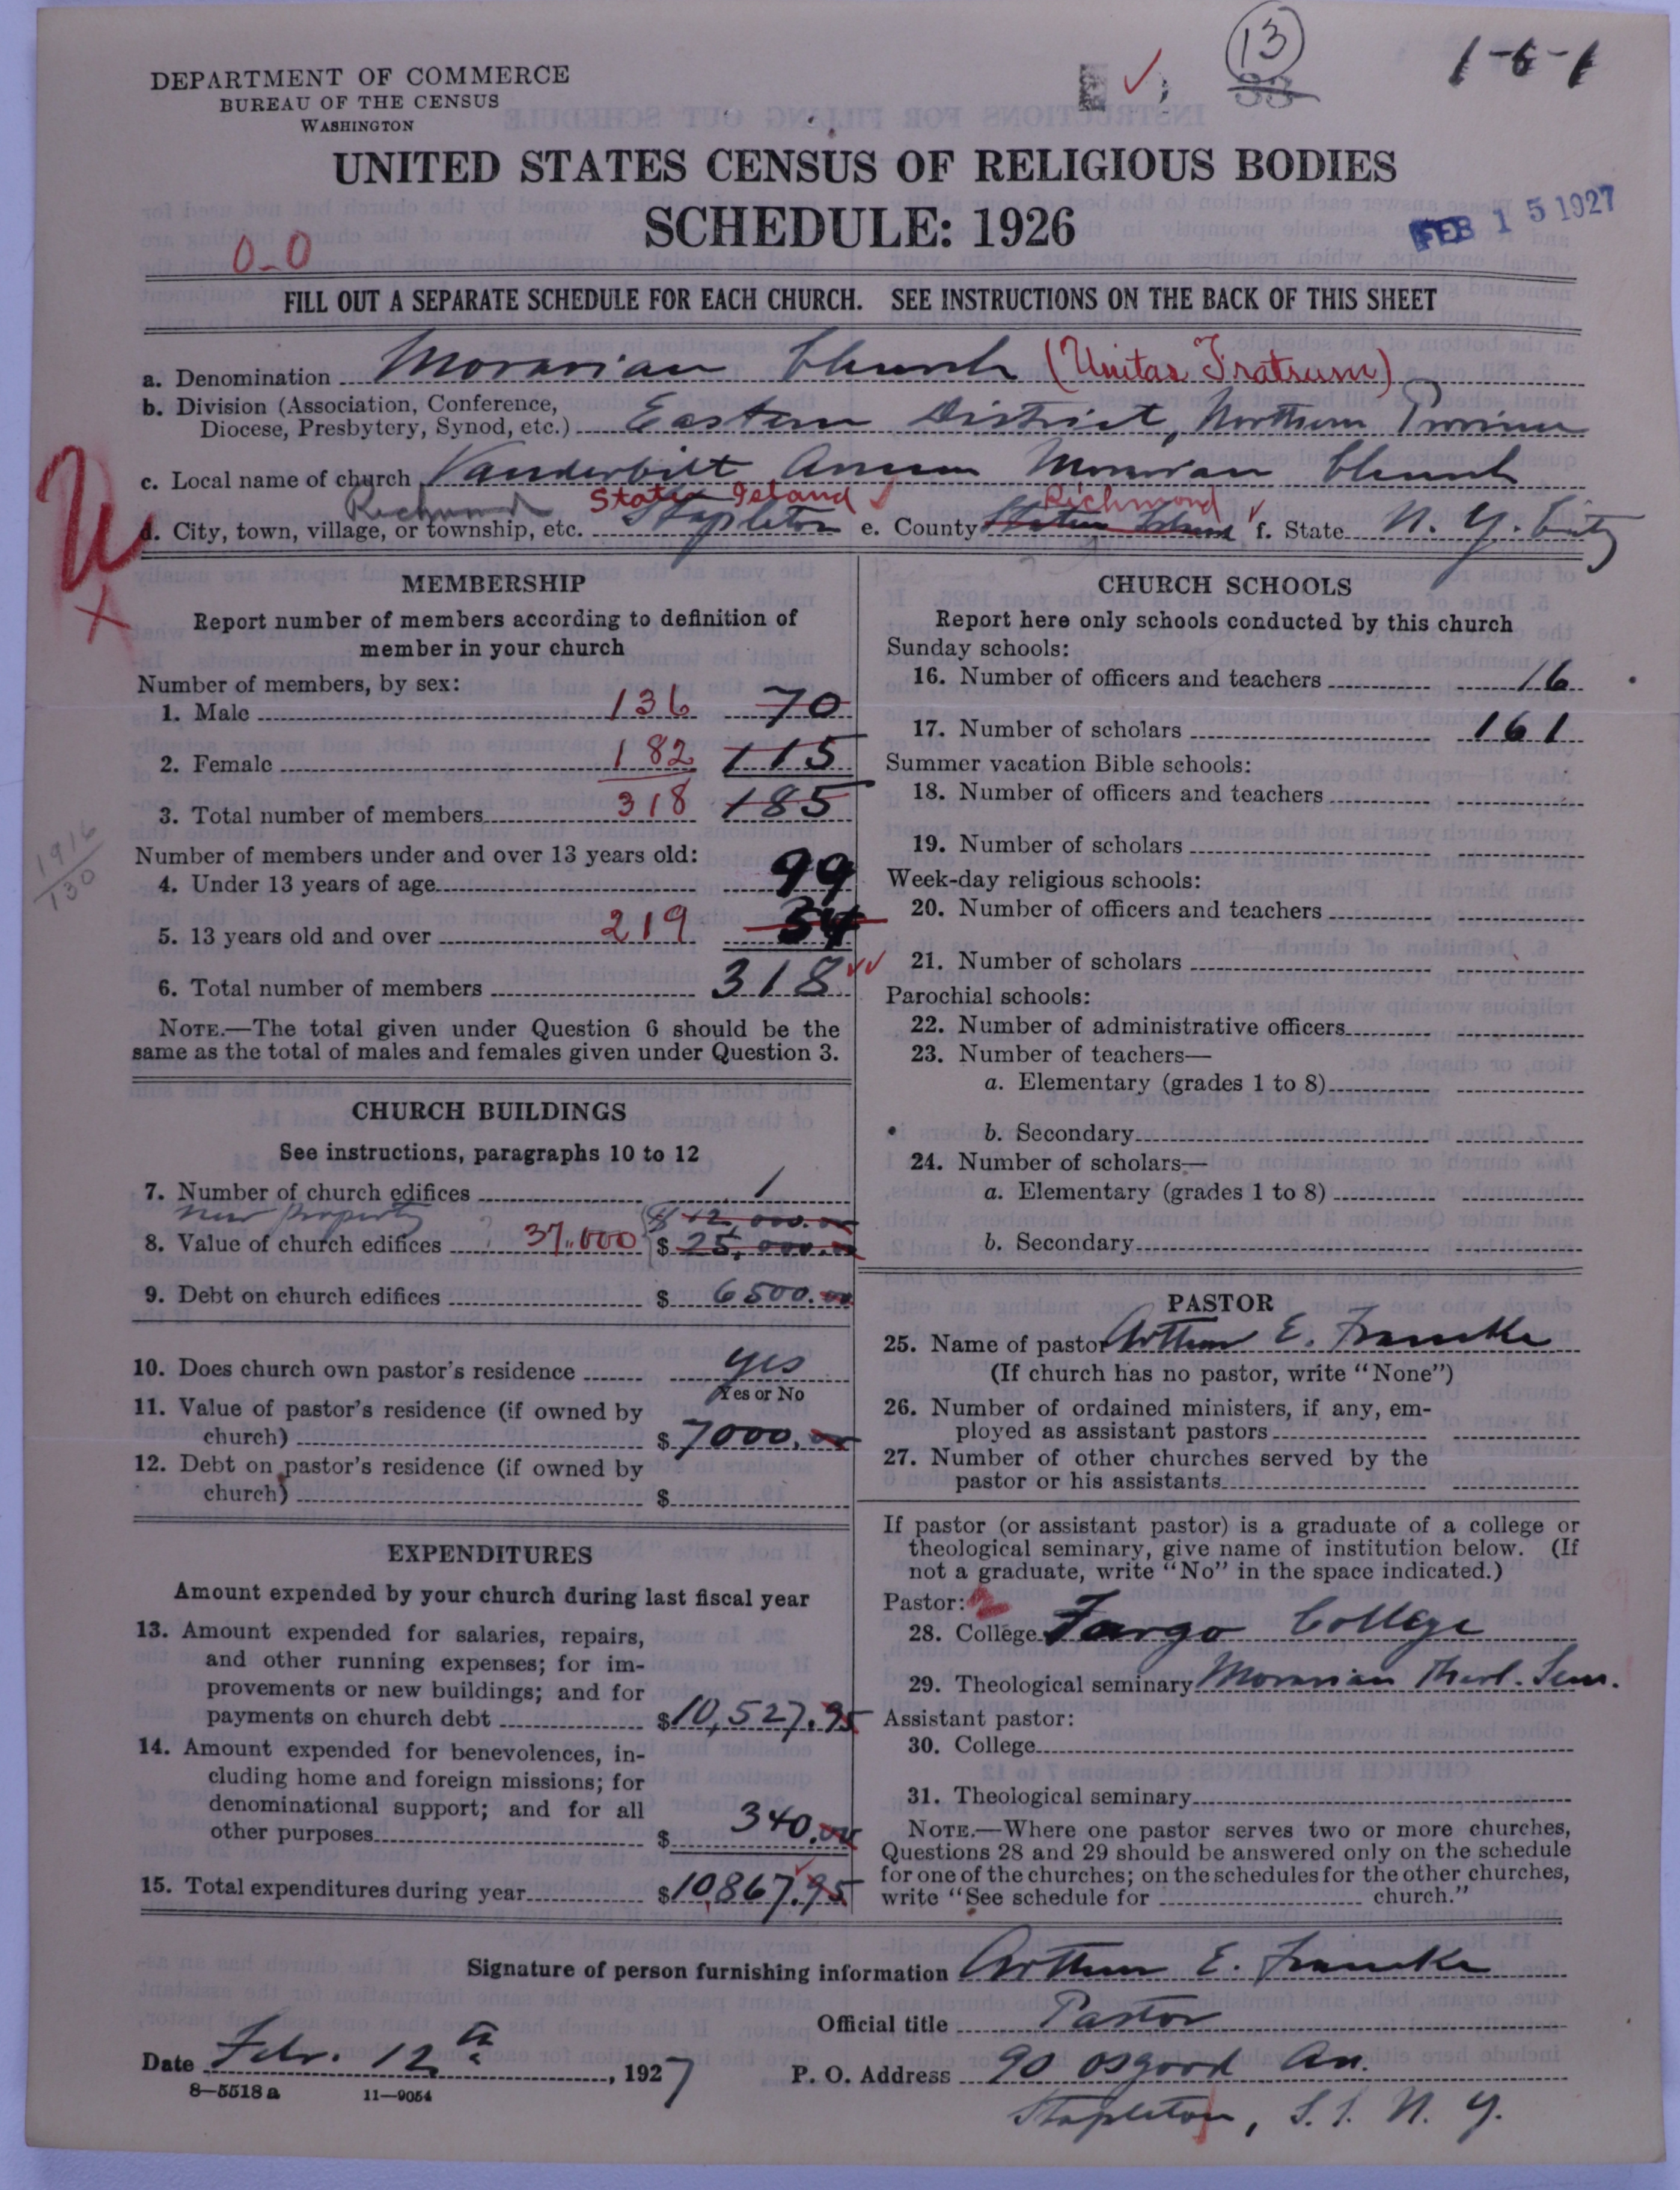 13
33
1-6-1
DEPARTMENT OF COMMERCE
BUREAU OF THE CENSUS
WASHINGTON
UNITED STATES CENSUS OF RELIGIOUS BODIES
SCHEDULE: 1926
FEB 15 1927
0-0
FILL OUT A SEPARATE SCHEDULE FOR EACH CHURCH. SEE INSTRUCTIONS ON THE BACK OF THIS SHEET
a. Denomination Moravian Church (Unitas Fratrum)
b. Division (Association, Conference,
Diocese, Presbytery, Synod, etc.) Eastern District, Northern Province
c. Local name of church Vanderbilt Avenue Moravian Church
Richmond Staten Island Richmond
d. City, town, village, or township, etc. Stapleton e. County Staten Island f. State N. Y. City
MEMBERSHIP
Report number of members according to definition of
member in your church
Number of members, by sex:
1. Male 136 70
2. Female 182 115
3. Total number of members 318 185
1916
130
Number of members under and over 13 years old:
4. Under 13 years of age 99
5. 13 years old and over 219 34
6. Total number of members 318
NOTE.—The total given under Question 6 should be the
same as the total of males and females given under Question 3.
CHURCH BUILDINGS
See instructions, paragraphs 10 to 12
7. Number of church edifices 1
new property $12,000.00
8. Value of church edifices ? 37,000 $25,000.00
9. Debt on church edifices $ 6500.00
10. Does church own pastor's residence yes
Yes or No
11. Value of pastor's residence (if owned by
church) $7000.00
12. Debt on pastor's residence (if owned by
church) $
EXPENDITURES
Amount expended by your church during last fiscal year
13. Amount expended for salaries, repairs,
and other running expenses; for im-
provements or new buildings; and for
payments on church debt $10,527.95
14. Amount expended for benevolences, in-
cluding home and foreign missions; for
denominational support; and for all
other purposes $ 340.00
15. Total expenditures during year $10,867.95
CHURCH SCHOOLS
Report here only schools conducted by this church
Sunday schools:
16. Number of officers and teachers 16
17. Number of scholars 161
Summer vacation Bible schools:
18. Number of officers and teachers
19. Number of scholars
Week-day religious schools:
20. Number of officers and teachers
21. Number of scholars
Parochial schools:
22. Number of administrative officers
23. Number of teachers—
a. Elementary (grades 1 to 8)
b. Secondary
24. Number of scholars—
a. Elementary (grades 1 to 8)
b. Secondary
PASTOR
25. Name of pastor Arthur E. Francke
(If church has no pastor, write "None")
26. Number of ordained ministers, if any, em-
ployed as assistant pastors
27. Number of other churches served by the
pastor or his assistants
If pastor (or assistant pastor) is a graduate of a college or
theological seminary, give name of institution below. (If
not a graduate, write "No" in the space indicated.)
Pastor: 2
28. College Fargo College
29. Theological seminary Moravian Theol. Sem.
Assistant pastor:
30. College
31. Theological seminary
NOTE.—Where one pastor serves two or more churches,
Questions 28 and 29 should be answered only on the schedule
for one of the churches; on the schedules for the other churches,
write "See schedule for church."
Signature of person furnishing information Arthur E. Francke
Official title Pastor
Date Febr. 12th, 1927
P. O. Address 90 Osgood Av.
Stapleton, S. I. N. Y.
8—5518 a 11—9054